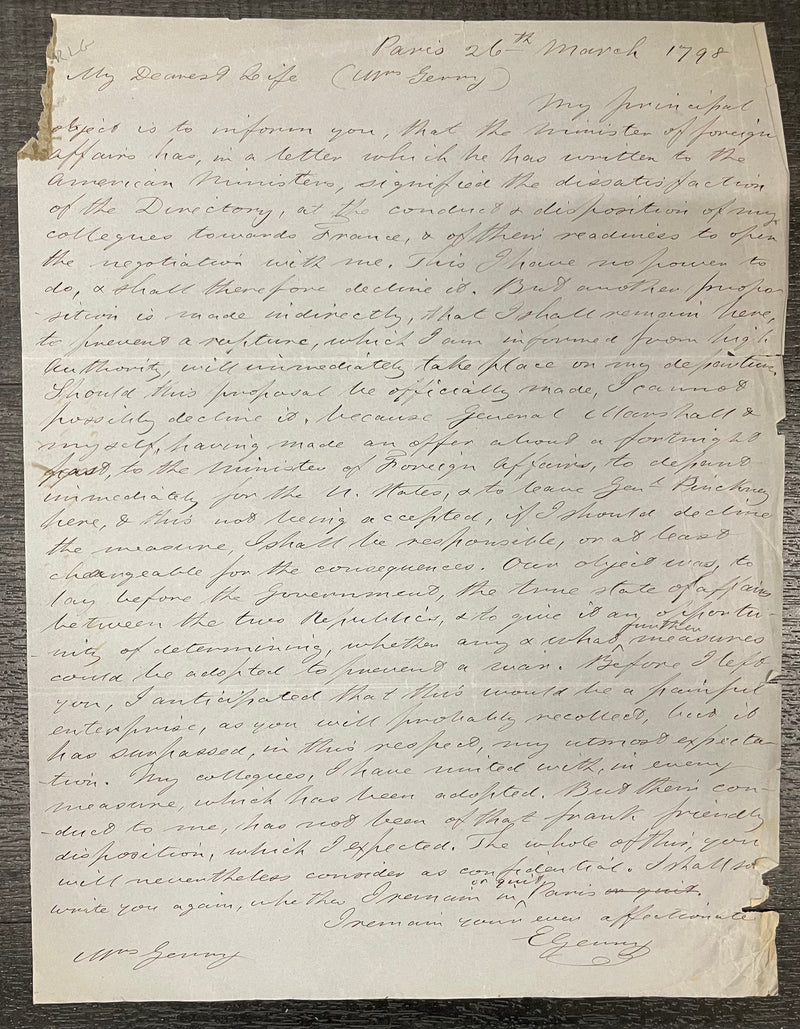 RLG
Paris 26th March 1798
My Dearest Wife (Mrs Gerry)
My principal
object is to inform you, that the Minister of foreign
affairs has, in a letter which he has written to the
American Ministers, signified the dissatisfaction
of the Directory, at the conduct & disposition of my
collegues towards France, & of their readiness to open
the negotiation with me. This I have no power to
do, & shall therefore decline it. But another propo-
-sition is made indirectly, that I shall remain here,
to prevent a rupture, which I am informed from high
authority, will immediately take place on my departure.
Should this proposal be officially made, I cannot
possibly decline it, because General Marshall &
myself, having made an offer about a fortnight
past, to the Minister of Foreign Affairs, to depart
immediately for the U. States, & to leave Genl Pinckney
here, & this not being accepted, if I should decline
the measure, I shall be responsible, or at least
chargeable for the consequences. Our object was, to
lay before the Government, the true state of affairs
between the two Republics, & to give it an opportu-
-nity of determining, whether any & what further measures
could be adopted to prevent a war. Before I left
you, I anticipated that this would be a painful
enterprise, as you will probably recollect, but it
has surpassed, in this respect, my utmost expecta-
-tion. My collegues, I have united with, in every
measure, which has been adopted. But their con-
-duct to me, has not been of that frank friendly
disposition, which I expected. The whole of this, you
will nevertheless consider as confidential. I shall
write you again, whether I remain in or quit Paris or quit.
I remain your ever affectionate
EGerry
Mrs Gerry